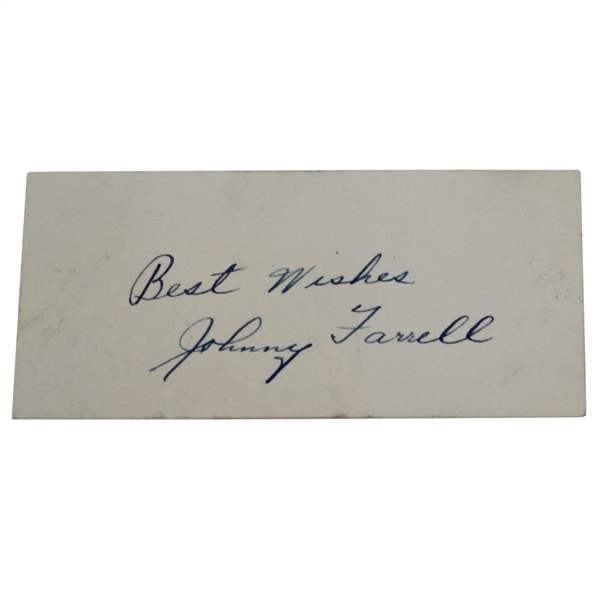 Best Wishes
Johnny Farrell